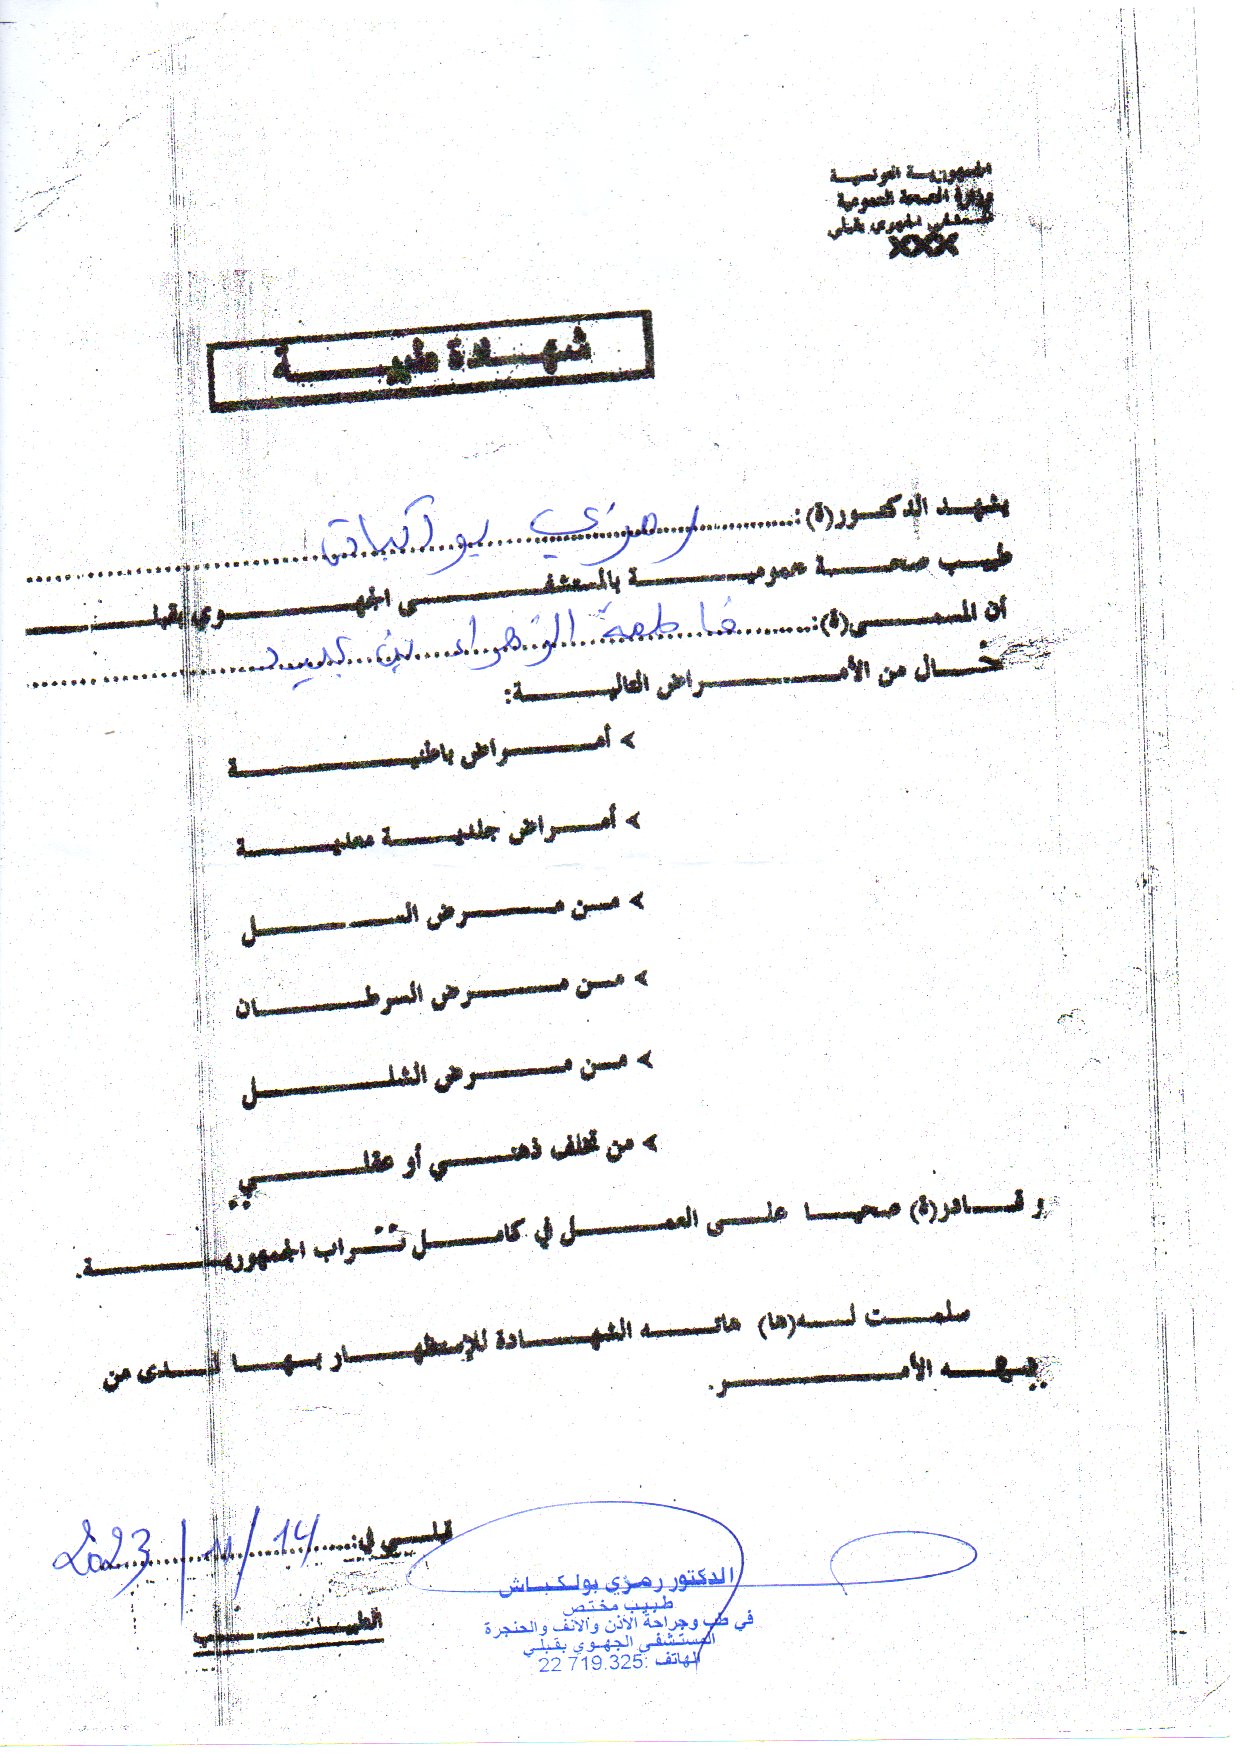 الجمهورية التونسية
وزارة الصحة العمومية
المستشفى الجهوي بقبلي
شهادة طبية
يشهد الدكتور(ة): رمزي بولكباش
طبيب صحة عمومية بالمستشفى الجهوي بقبلي
أن المسمى(ة): فاطمة الزهراء بن
خال من الأمراض التالية:
> أمراض باطنية
> أمراض جلدية معدية
> من مرض السل
> من مرض السرطان
> من مرض الشلل
> من تخلف ذهني أو عقلي
و قادر(ة) صحيا على العمل في كامل تراب الجمهورية.
سلمت له(ها) هاته الشهادة للإستظهار بها لدى من
يهمه الأمر.
قبلي في: 14/11/2023
الطبيب
الدكتور رمزي بولكباش
طبيب مختص
في طب وجراحة الأذن والأنف والحنجرة
المستشفى الجهوي بقبلي
الهاتف: 22 719.325